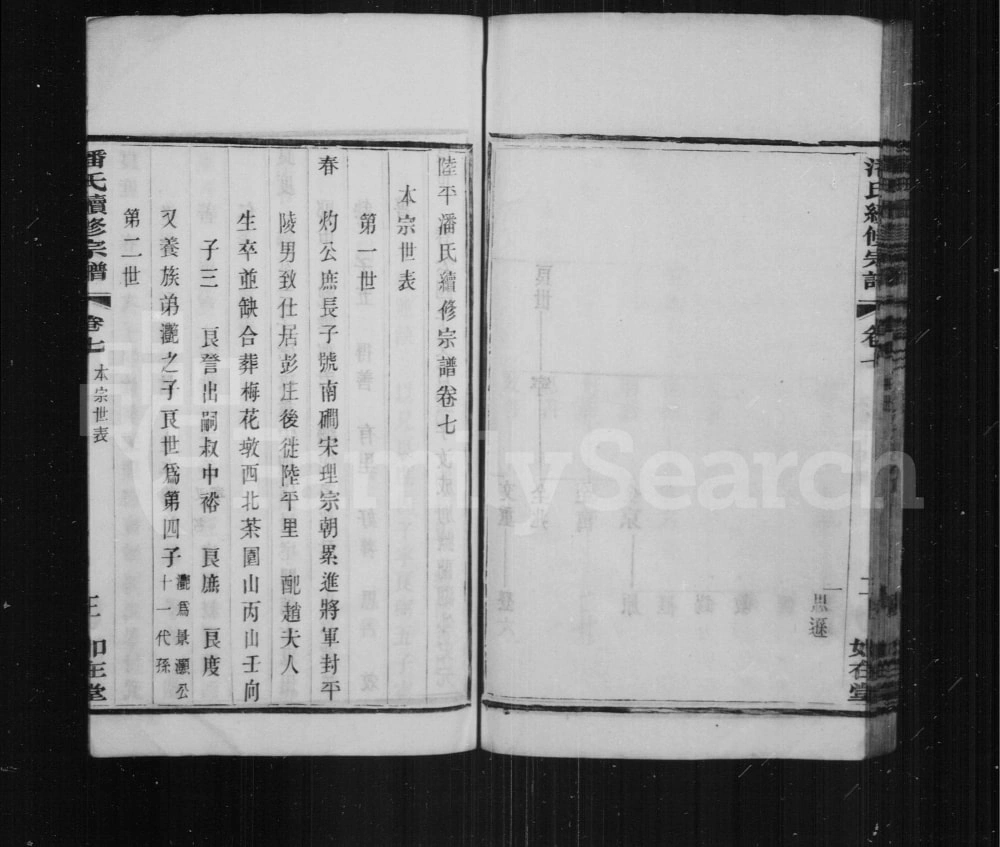 思遜
如在堂
陸平潘氏續修宗譜卷七
本宗世表
第一世
春 灼公庶長子號南磵宋理宗朝累進將軍封平
陵男致仕居彭庄後徙陸平里 配趙夫人
生卒並缺合葬梅花墩西北茶園山丙山壬向
子三 良詧出嗣叔中裕 良庶 良度
又養族弟灎之子良世爲第四子 灎爲景灝公十一代孫
第二世
潘氏續修宗譜 卷七 本宗世表 如在堂
FamilySearch